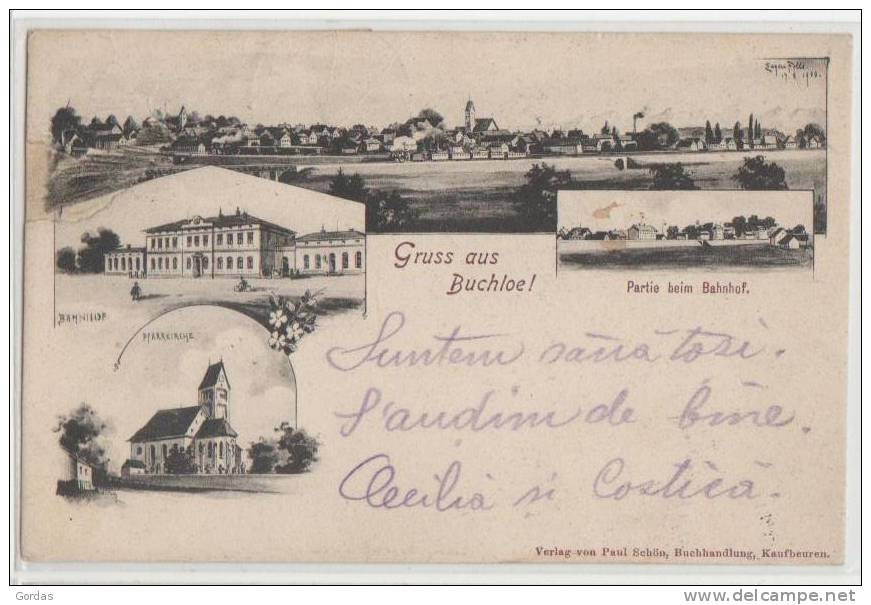 Gruss aus
Buchloe!
Partie beim Bahnhof.
BAHNHOF
PFARRKIRCHE
Suntem sănătoși.
S'audim de bine
Cecilia si Costică.
Verlag von Paul Schön, Buchhandlung, Kaufbeuren.
Gordas
delcampe.net